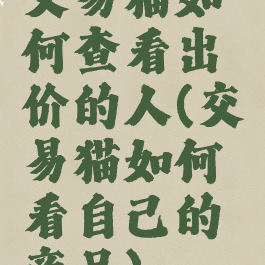 交易猫如
何查看出
价的人(交
易猫如何
看自己的
商品)